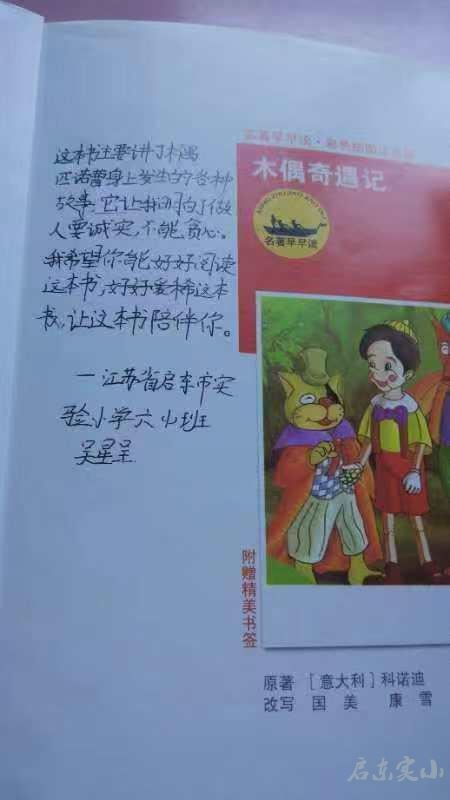 这本书主要讲了木偶
匹诺曹身上发生的各种
故事,它让我明白了做
人要诚实,不能贪心。
我希望你能好好阅读
这本书,好好爱惜这本
书,让这本书陪伴你。
—江苏省启东市实
验小学六(1)班
吴星呈
名著早早读·彩色插图注音版
木偶奇遇记
名著早早读
附赠精美书签
原著 [意大利]科诺迪
改写 国 美 康 雪
启东实小